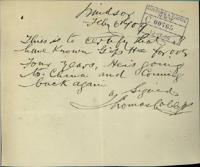 Windsor
This is to certify that I
have Known Gip Hee for over
four years, He is going
to China and Coming
back again
Signed
Thomas